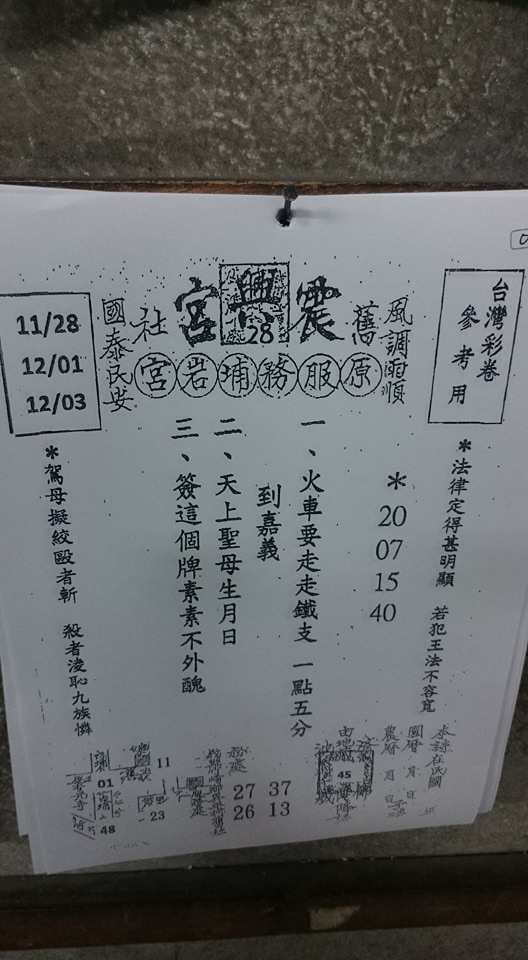 台灣彩卷
參考用
風調雨順
舊
震興宮
28
社
原服務埔岩宮
國泰民安
11/28
12/01
12/03
*法律定得甚明顯 若犯王法不容寬
*
20
07
15
40
一、火車要走走鐵支 一點五分
到嘉義
二、天上聖母生月日
三、簽這個牌素素不外醜
*駕母擬絞毆者斬 殺者淩恥九族憐
國曆 月 日
農曆 月 日
45
37
13
27
26
11
23
01
48